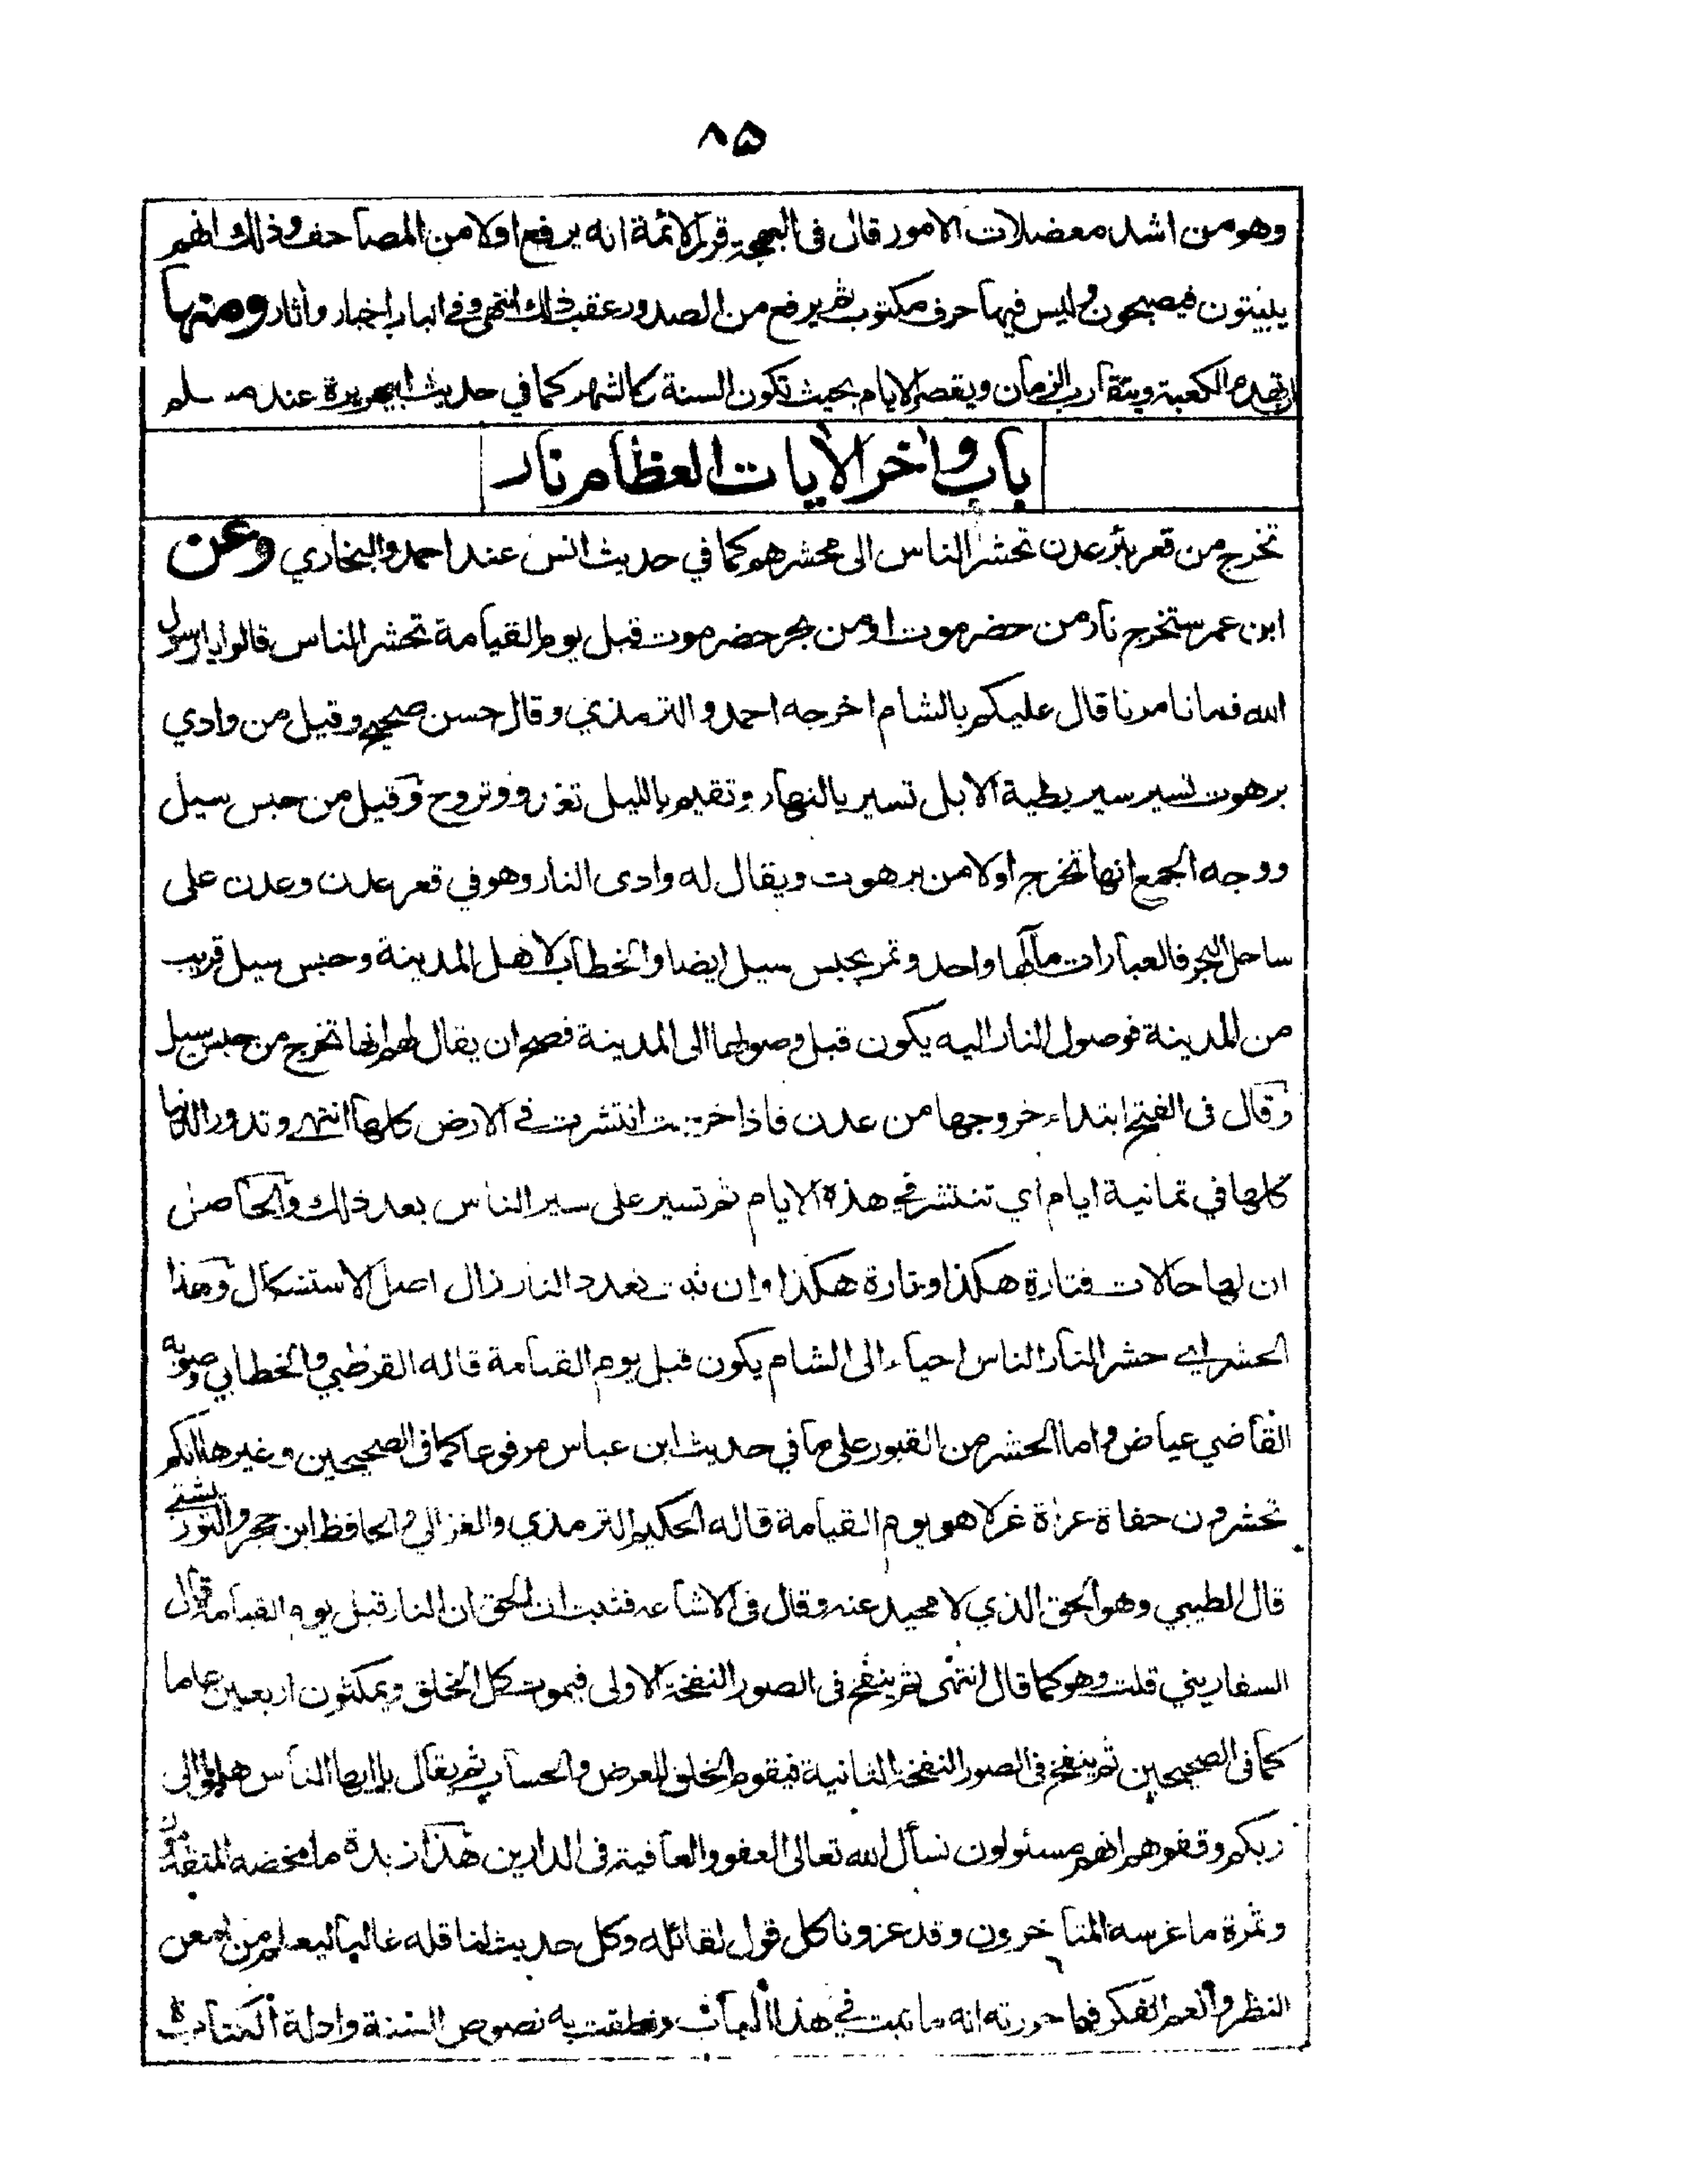 ٨٥
وهو من اشد معضلات الامور قال فى البهجة قرر الائمة انه يرفع اولا من المصاحف وذلك انهم
يبيتون فيصبحون وليس فيها حرف مكتوب ثم يرفع من الصدور عقب ذلك انتهى وفي الباب اخبار واثار ومنها
ان تهدم الكعبة ويتقارب الزمان ويقصر الايام بحيث تكون السنة كالشهر كما في حديث ابي هريرة عند مسلم
باب واخر الايات العظام نار
تخرج من قعر بئر عدن تحشر الناس الى محشرهم كما في حديث انس عند احمد والبخاري وعن
ابن عمر ستخرج نار من حضرموت او من بحر حضرموت قبل يوم القيامة تحشر الناس قالوا يا رسول
الله فما تامرنا قال عليكم بالشام اخرجه احمد والترمذي وقال حسن صحيح وقيل من وادي
برهوت تسير سير بطية الابل تسير بالنهار وتقيم بالليل تغدو وتروح وقيل من حبس سيل
ووجه الجمع انها تخرج اولا من برهوت ويقال له وادى النار وهو في قعر عدن وعدن على
ساحل البحر فالعبارات مآلها واحد وتمر بحبس سيل ايضا والخطاب لاهل المدينة وحبس سيل قريب
من المدينة فوصول النار اليه يكون قبل وصولها الى المدينة فصح ان يقال لهم انها تخرج من حبس سيل
وقال فى الفتح ابتداء خروجها من عدن فاذا خرجت انتشرت في الارض كلها انتهى وتدور الدنيا
كلها في ثمانية ايام اي تنتشر في هذه الايام ثم تسير على سير الناس بعد ذلك والحاصل
ان لها حالات فتارة هكذا وتارة هكذا وان ثبت تعدد النار زال اصل الاستشكال وهذا
الحشر اي حشر النار الناس احياء الى الشام يكون قبل يوم القيامة قاله القرطبي والخطابي وصوبه
القاضي عياض واما الحشر من القبور على ما في حديث ابن عباس مرفوعا كما فى الصحيحين وغيرهما انكم
تحشرون حفاة عراة غرلا هو يوم القيامة قاله الحكيم الترمذي والغزالي والحافظ ابن حجر والتوربشتي
قال الطيبي وهو الحق الذي لا محيد عنه وقال فى الاشاعه فثبت ان الحق ان النار قبل يوم القيامة قال
السفاريني قلت وهو كما قال انتهى ثم ينفخ فى الصور النفخة الاولى فيموت كل الخلق ويمكثون اربعين عاما
كما فى الصحيحين ثم ينفخ فى الصور النفخة الثانية فيقوم الخلق للعرض والحساب ثم يقال يا ايها الناس هلموا الى
ربكم وقفوهم انهم مسئولون نسأل الله تعالى العفو والعافية فى الدارين هذا زبدة ما مخضه المتقدمون
وثمرة ما غرسه المتاخرون وقد عزونا كل قول لقائله وكل حديث لناقله غالبا ليعلم من امعن
النظر وانعم الفكر فيما حررته انه ما ثبت في هذا الباب ونطقت به نصوص السنة وادلة الكتاب